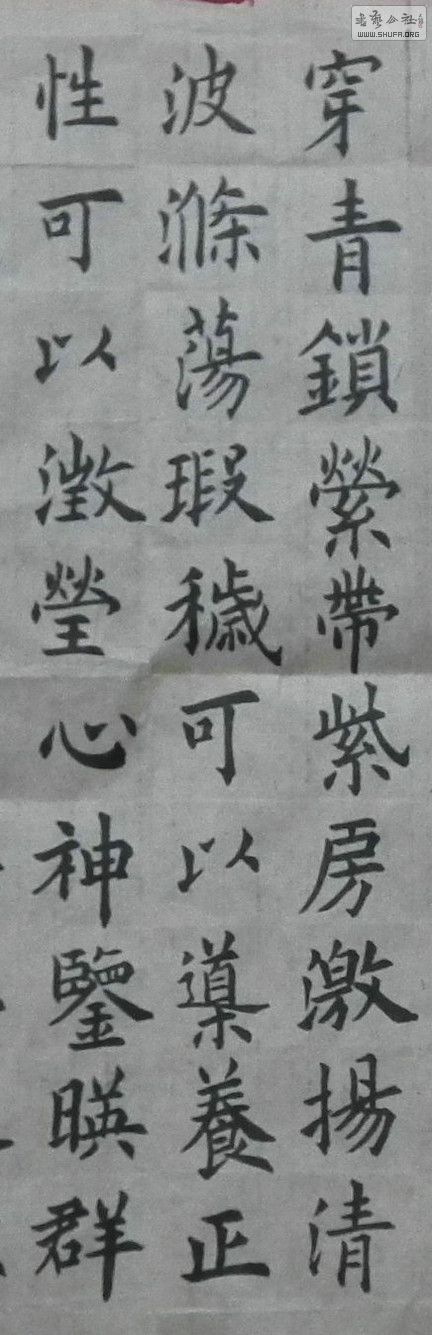 穿青鎖縈帶紫房激揚清
波滌蕩瑕穢可以導養正
性可以澂瑩心神鑒暎群
書艺公社
WWW.SHUFA.ORG